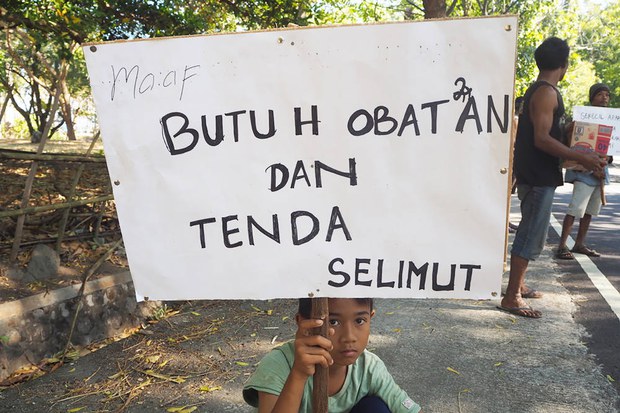 Ma:aF
BUTUH OBAT²AN
DAN
TENDA
SELIMUT